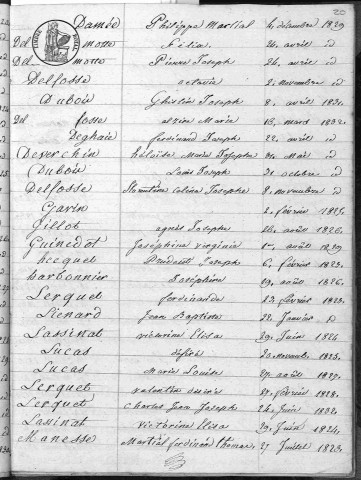 20
Daméd Philippe Martial 4 décembre 1829
Delmotte Félix 24 avril id
Delmotte Pierre Joseph 24 avril id
Delfosse octavie 2 novembre id
Dubois Ghislin Joseph 8 avril 1831
Delfosse alzire Marie 13 mars 1832
Deghaie ferdinand Joseph 22 avril id
Deverchin héloïse Marie Josephe Mai id
Dubois Louis Joseph 31 octobre id
Delfosse florentine Celina Josephe 8 novembre id
Gavin 2 février 1825
Gillot agnès Josephe 26 août 1826
Guinedot Joséphine Virginie août 1829
hecquet Prudent Joseph 6 février 1823
harbonnier Joséphine 29 août 1826
Lerquet ferdinande 22 février 1823
Lienard Jean Baptiste 22 Janvier id
Lassinat victorine Elisa 29 Juin 1824
Lucas désiré 20 novembre 1825
Lucas Marie Louise 27 août 1829
Lerquet valentin désiré 27 février 1828
Lerquet Charles Jean Joseph 24 Juin 1832
Lassinat victorine Elisa 29 Juin 1824
Manesse Martial ferdinand thomas 27 Juillet 1823